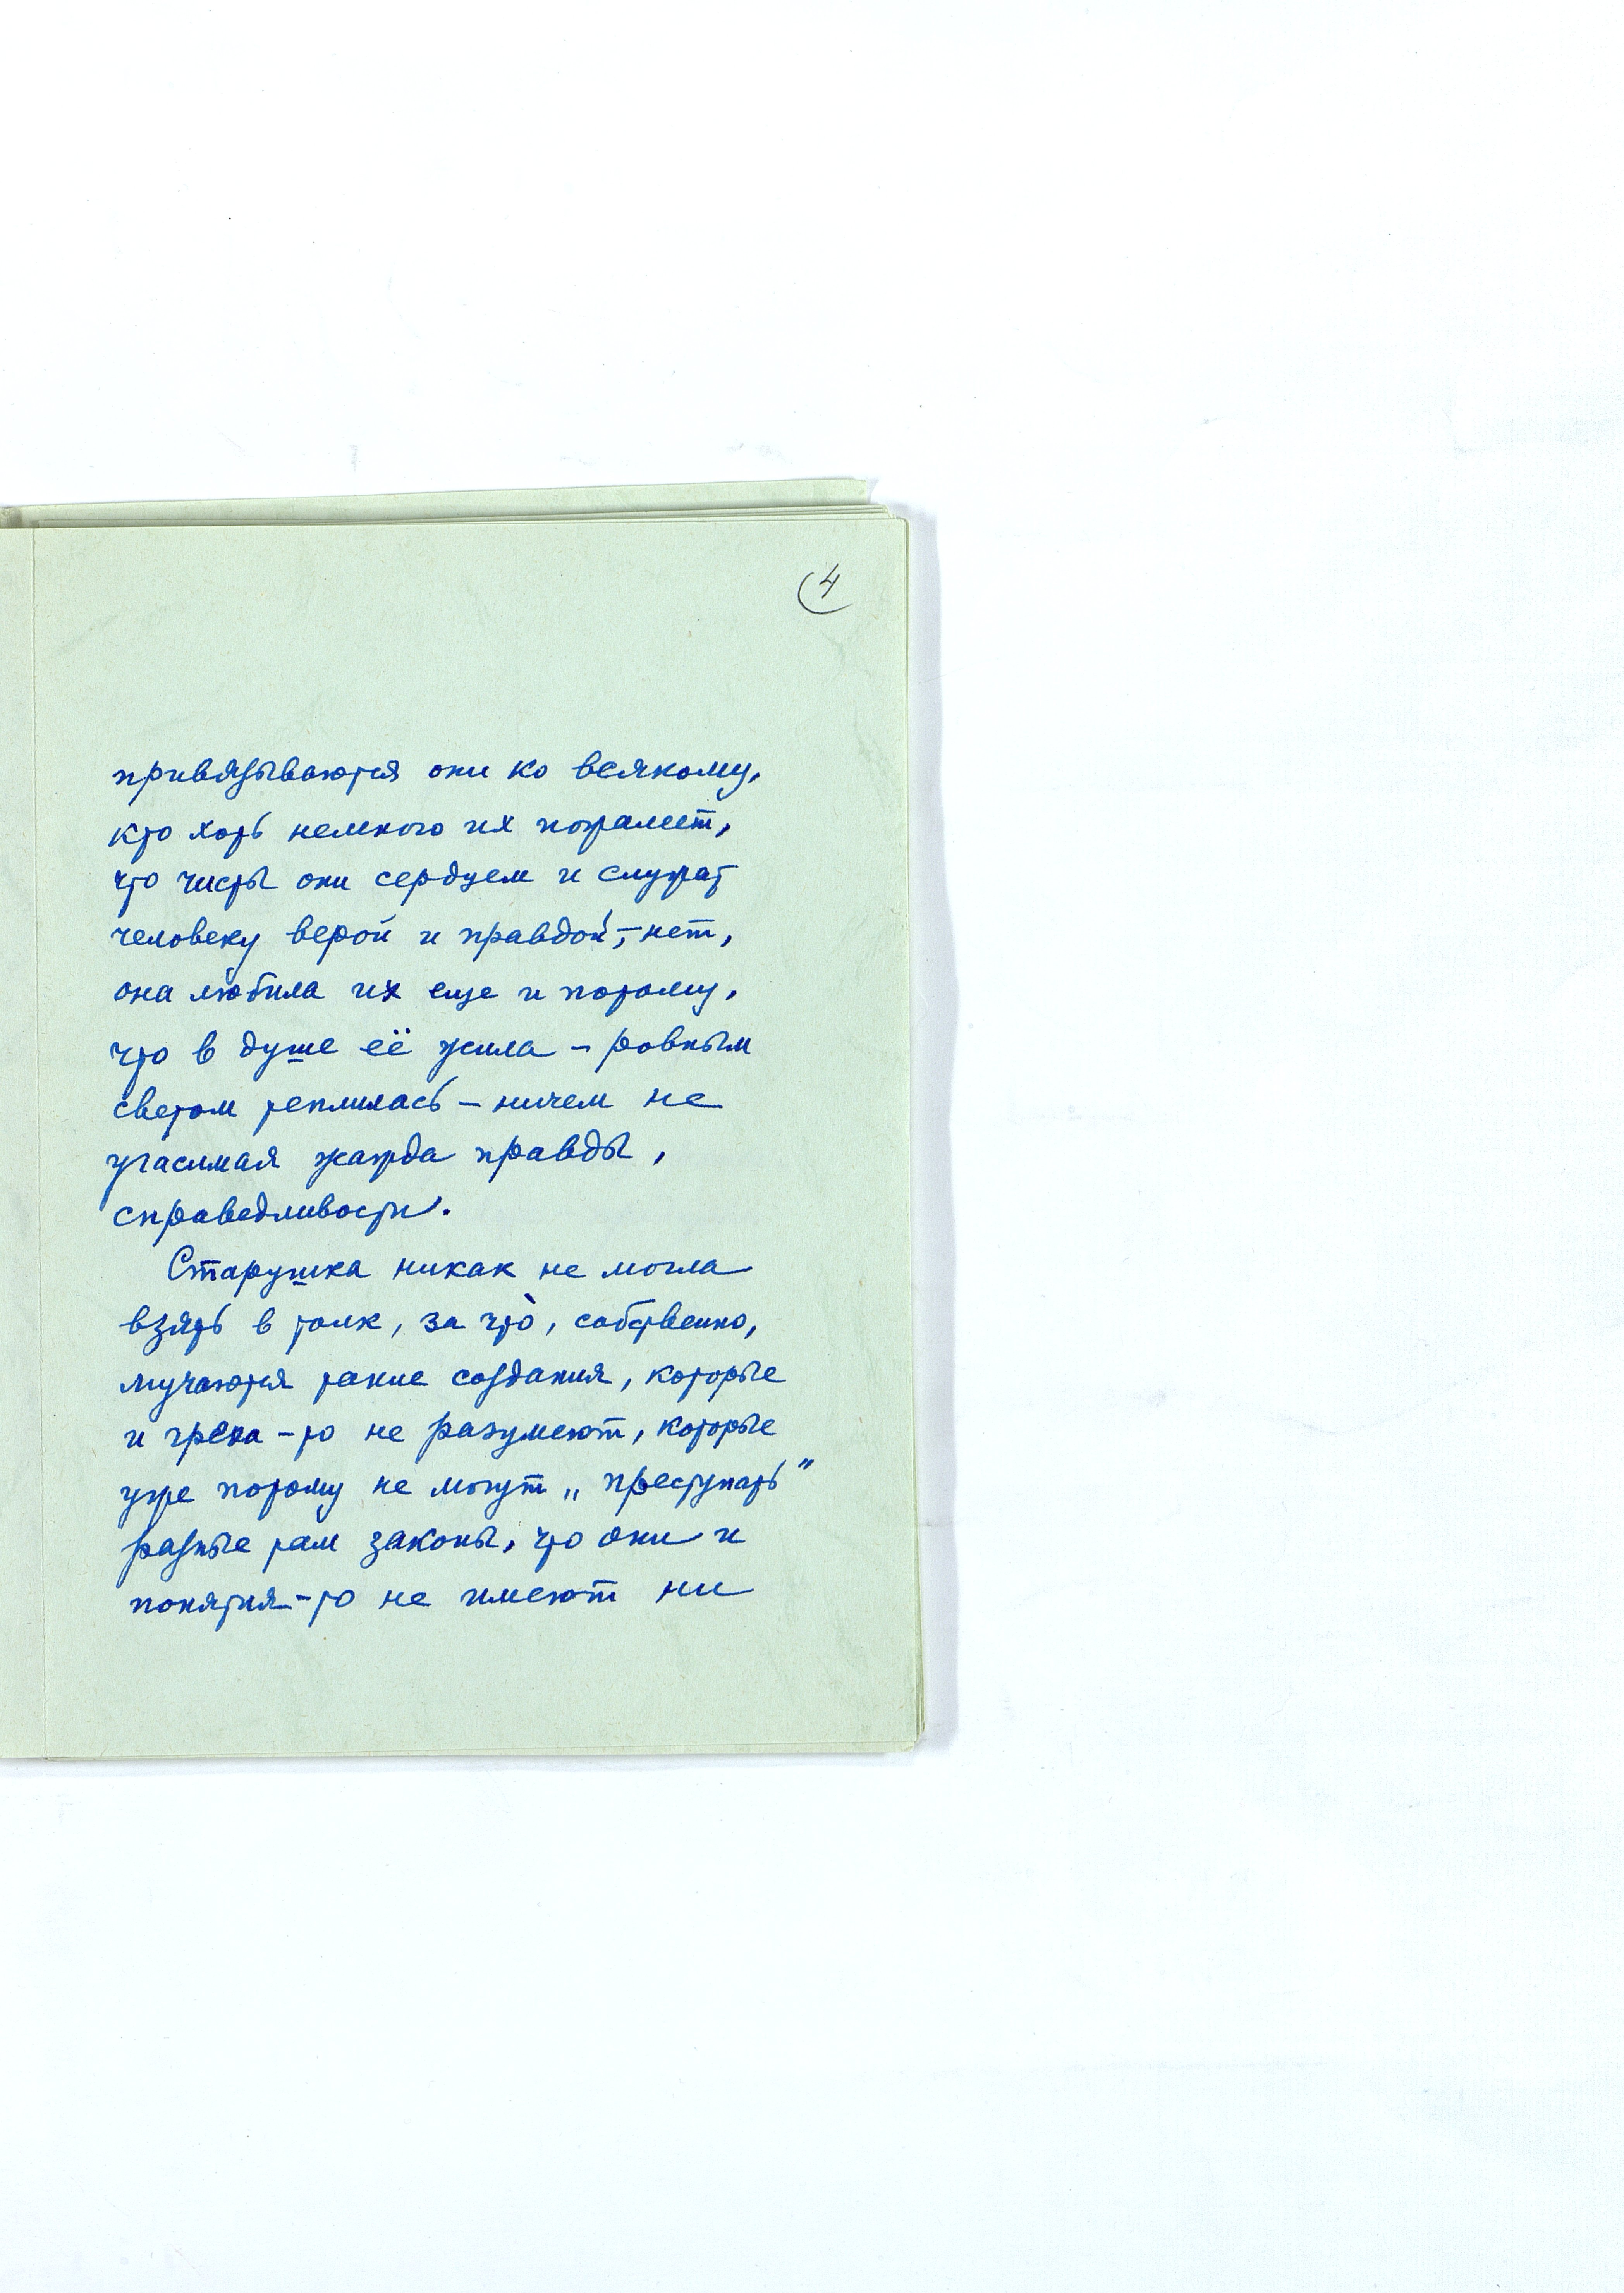 4
привязываются они ко всякому,
кто хоть немного их пожалеет,
что чисты они сердцем и служат
человеку верой и правдой, – нет,
она любила их еще и потому,
что в душе её жила – ровным
светом теплилась – ничем не
угасимая жажда правды,
справедливости.
Старушка никак не могла
взять в толк, за что̀, собственно,
мучаются такие создания, которые
и греха-то не разумеют, которые
уже потому не могут „преступать”
разные там законы, что они и
понятия-то не имеют ни